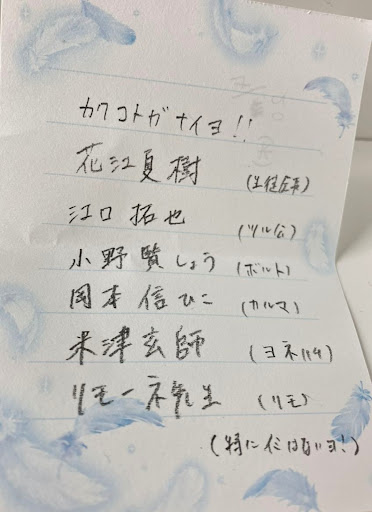 カクコトガナイヨ!!
花江夏樹
江口拓也 (ツル公)
小野賢しょう (ボルト)
岡本信ひこ (カルマ)
米津玄師 (ヨネ)
リモーネ先生 (リモ)
(特に はないヨ!)